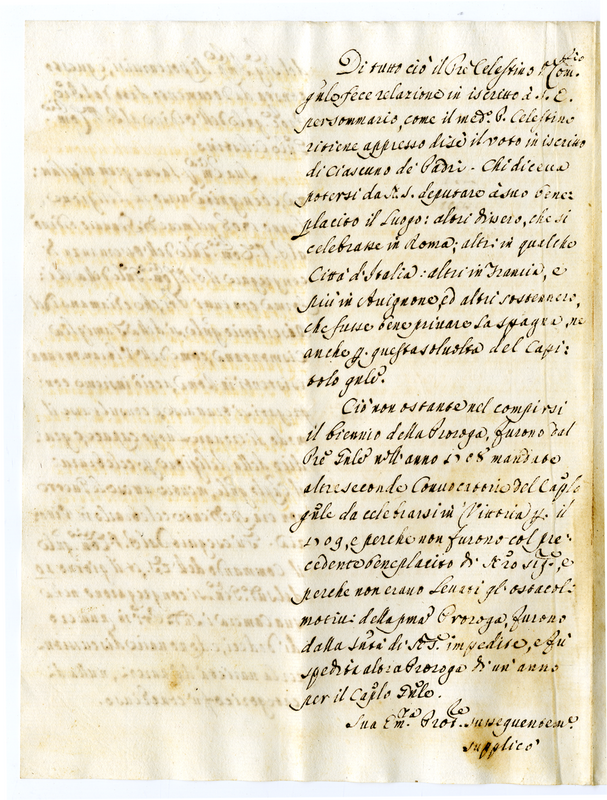 Di tutto ciò il Pre Celestino Com.rio
gn̄le fece relazione in iscritto à S. E.
per sommario, come il med.º P. Celestino
ritiene appresso di sè il voto in iscritto
di ciascuno de' Padri - Chi diceua
potersi da N. S. deputare à suo bene:
placito il Luogo: altri dissero, che si
celebrasse in Roma; altri in qualche
Città d'Italia: altri in Francia, e
più in Auignone, ed altri sostennero,
che fusse bene priuare la Spagna, ne
anche p. questa sol uolta del Capi:
tolo gn̄le.
Ciò non ostante nel compirsi
il biennio della Proroga, furono dal
Pre Gn̄le nell'anno 1708 mandate
altre seconde Conuocatorie del Cap̄lo
gn̄le da celebrarsi in Vittoria p. il
1709, e perche non furono col pre:
cedente beneplacito di Nro Sig.e, e
perche non erano leuati gl'ostacoli
motiui della pma Proroga, furono
dalla Sntà di N. S. impedite, e fù
spedita altra Proroga di un'anno
per il Cap̄lo Gn̄le.
Sua Em.za Prot.le susseguentem.e
supplicò